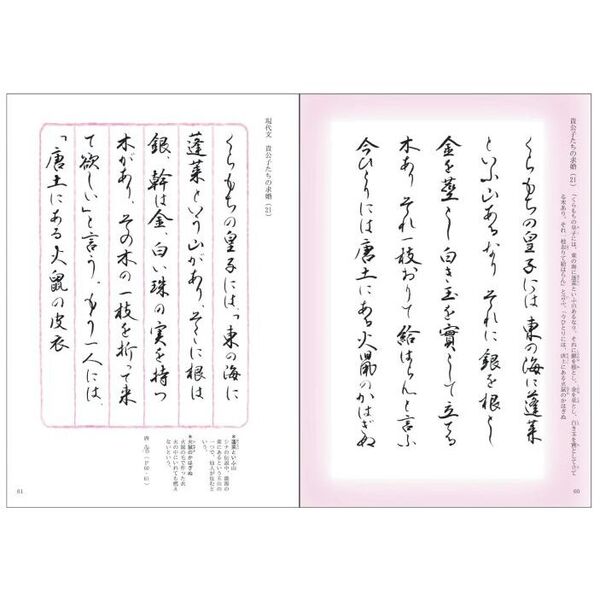 貴公子たちの求婚(21)
「くらもちの皇子には、東の海に蓬萊といふ山あるなり。それに銀を根とし、金を莖とし、白き玉を實として立て
る木あり。それ一枝おりて給はらん」と言ふ。「今ひとりには、唐土にある火鼠のかはぎぬ
くらもちの皇子には東の海に蓬萊
といふ山あるなり それに銀を根とし
金を莖とし白き玉を實として立てる
木あり それ一枝おりて給はらんと言ふ
今ひとりには唐土にある火鼠のかはぎぬ
60
現代文 貴公子たちの求婚(21)
くらもちの皇子には、「東の海に
蓬萊という山があり、そこに根は
銀、幹は金、白い珠の実を持つ
木があり、その木の一枝を折って来
て欲しい」と言う。もう一人には、
「唐土にある火鼠の皮衣
*蓬萊といふ山
*火鼠のかはぎぬ
火鼠の毛で作った衣
火の中にいれても燃え
ないという。
61